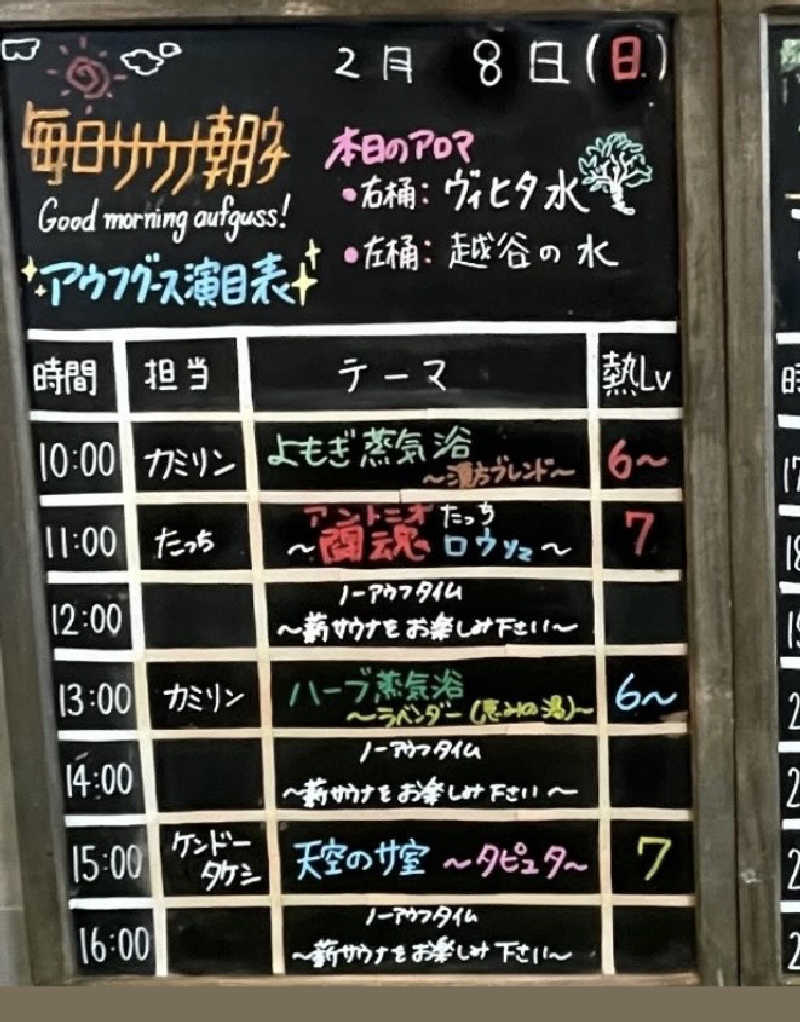 2月 8日(日)
毎日サウナ朝タ
Good morning aufguss!
アウフグース演目表
本日のアロマ
・右桶: ヴィヒタ水
・左桶: 越谷の水
時間 担当 テーマ 熱Lv
10:00 カミリン よもぎ蒸気浴 6〜
〜漢方ブレンド〜
11:00 たっち アントニオたっち 7
〜闘魂ロウリュ〜
12:00 ノーアウフタイム
〜薪サウナをお楽しみ下さい〜
13:00 カミリン ハーブ蒸気浴 6〜
〜ラベンダー(恵みの湯)〜
14:00 ノーアウフタイム
〜薪サウナをお楽しみ下さい〜
15:00 ケンドータケシ 天空のサ室 〜タピュタ〜 7
16:00 ノーアウフタイム
〜薪サウナをお楽しみ下さい〜